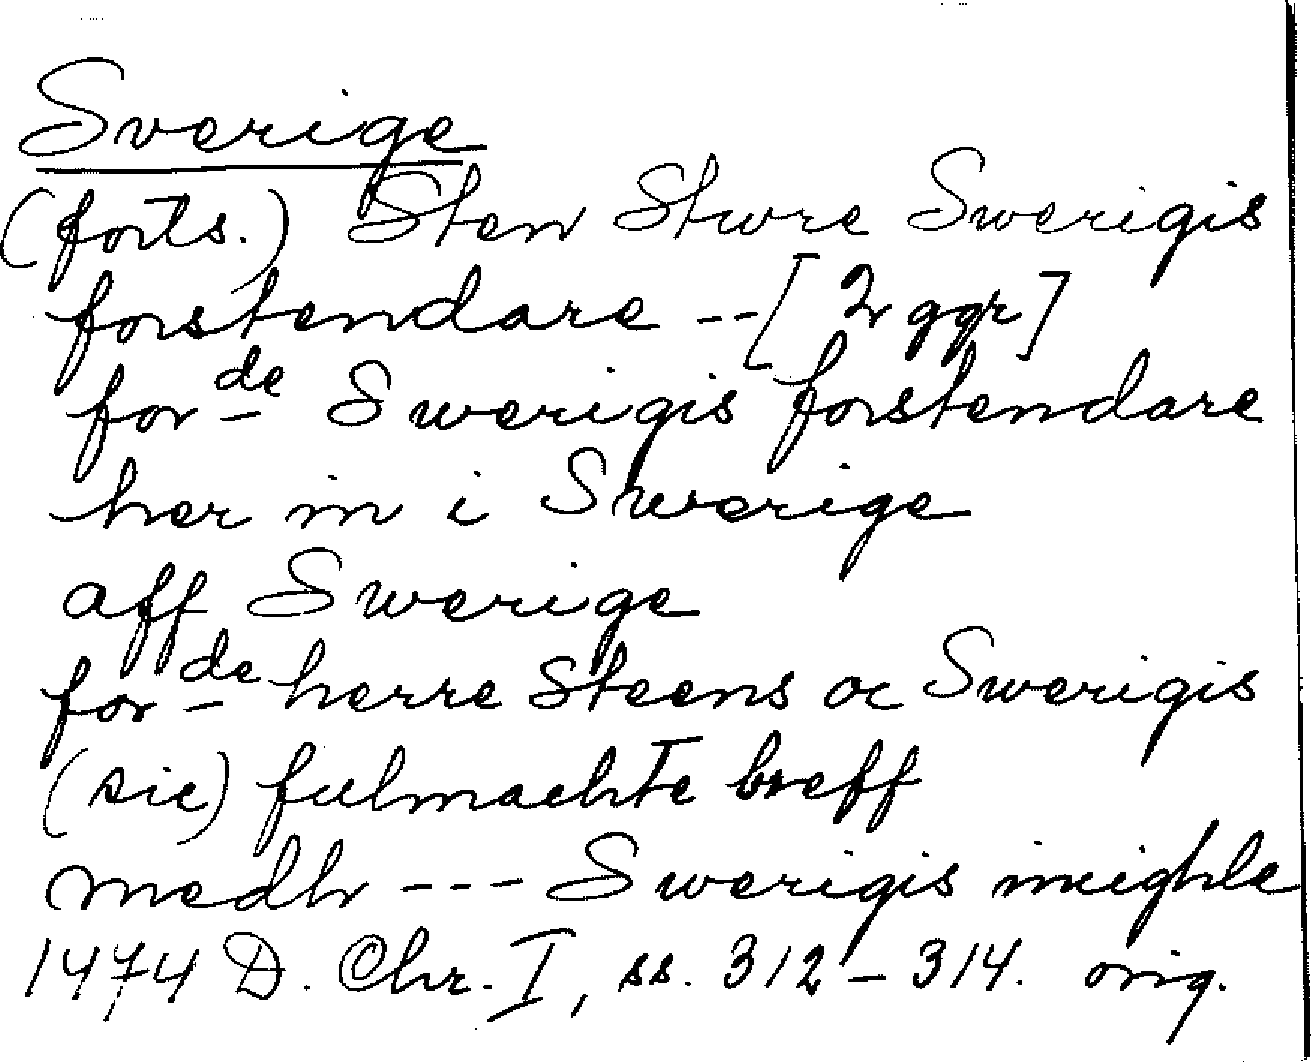 Sverige
(forts.) Sten Stwre Swerigis
forstendare -- [2 ggr]
for de Swerigis forstendare
her in i Swerige
aff Swerige
for de herre Steens oc Swerigis
(sic) fulmachte breff
medh --- Swerigis incighle
1474 D. Chr. I, ss. 312-314. orig.